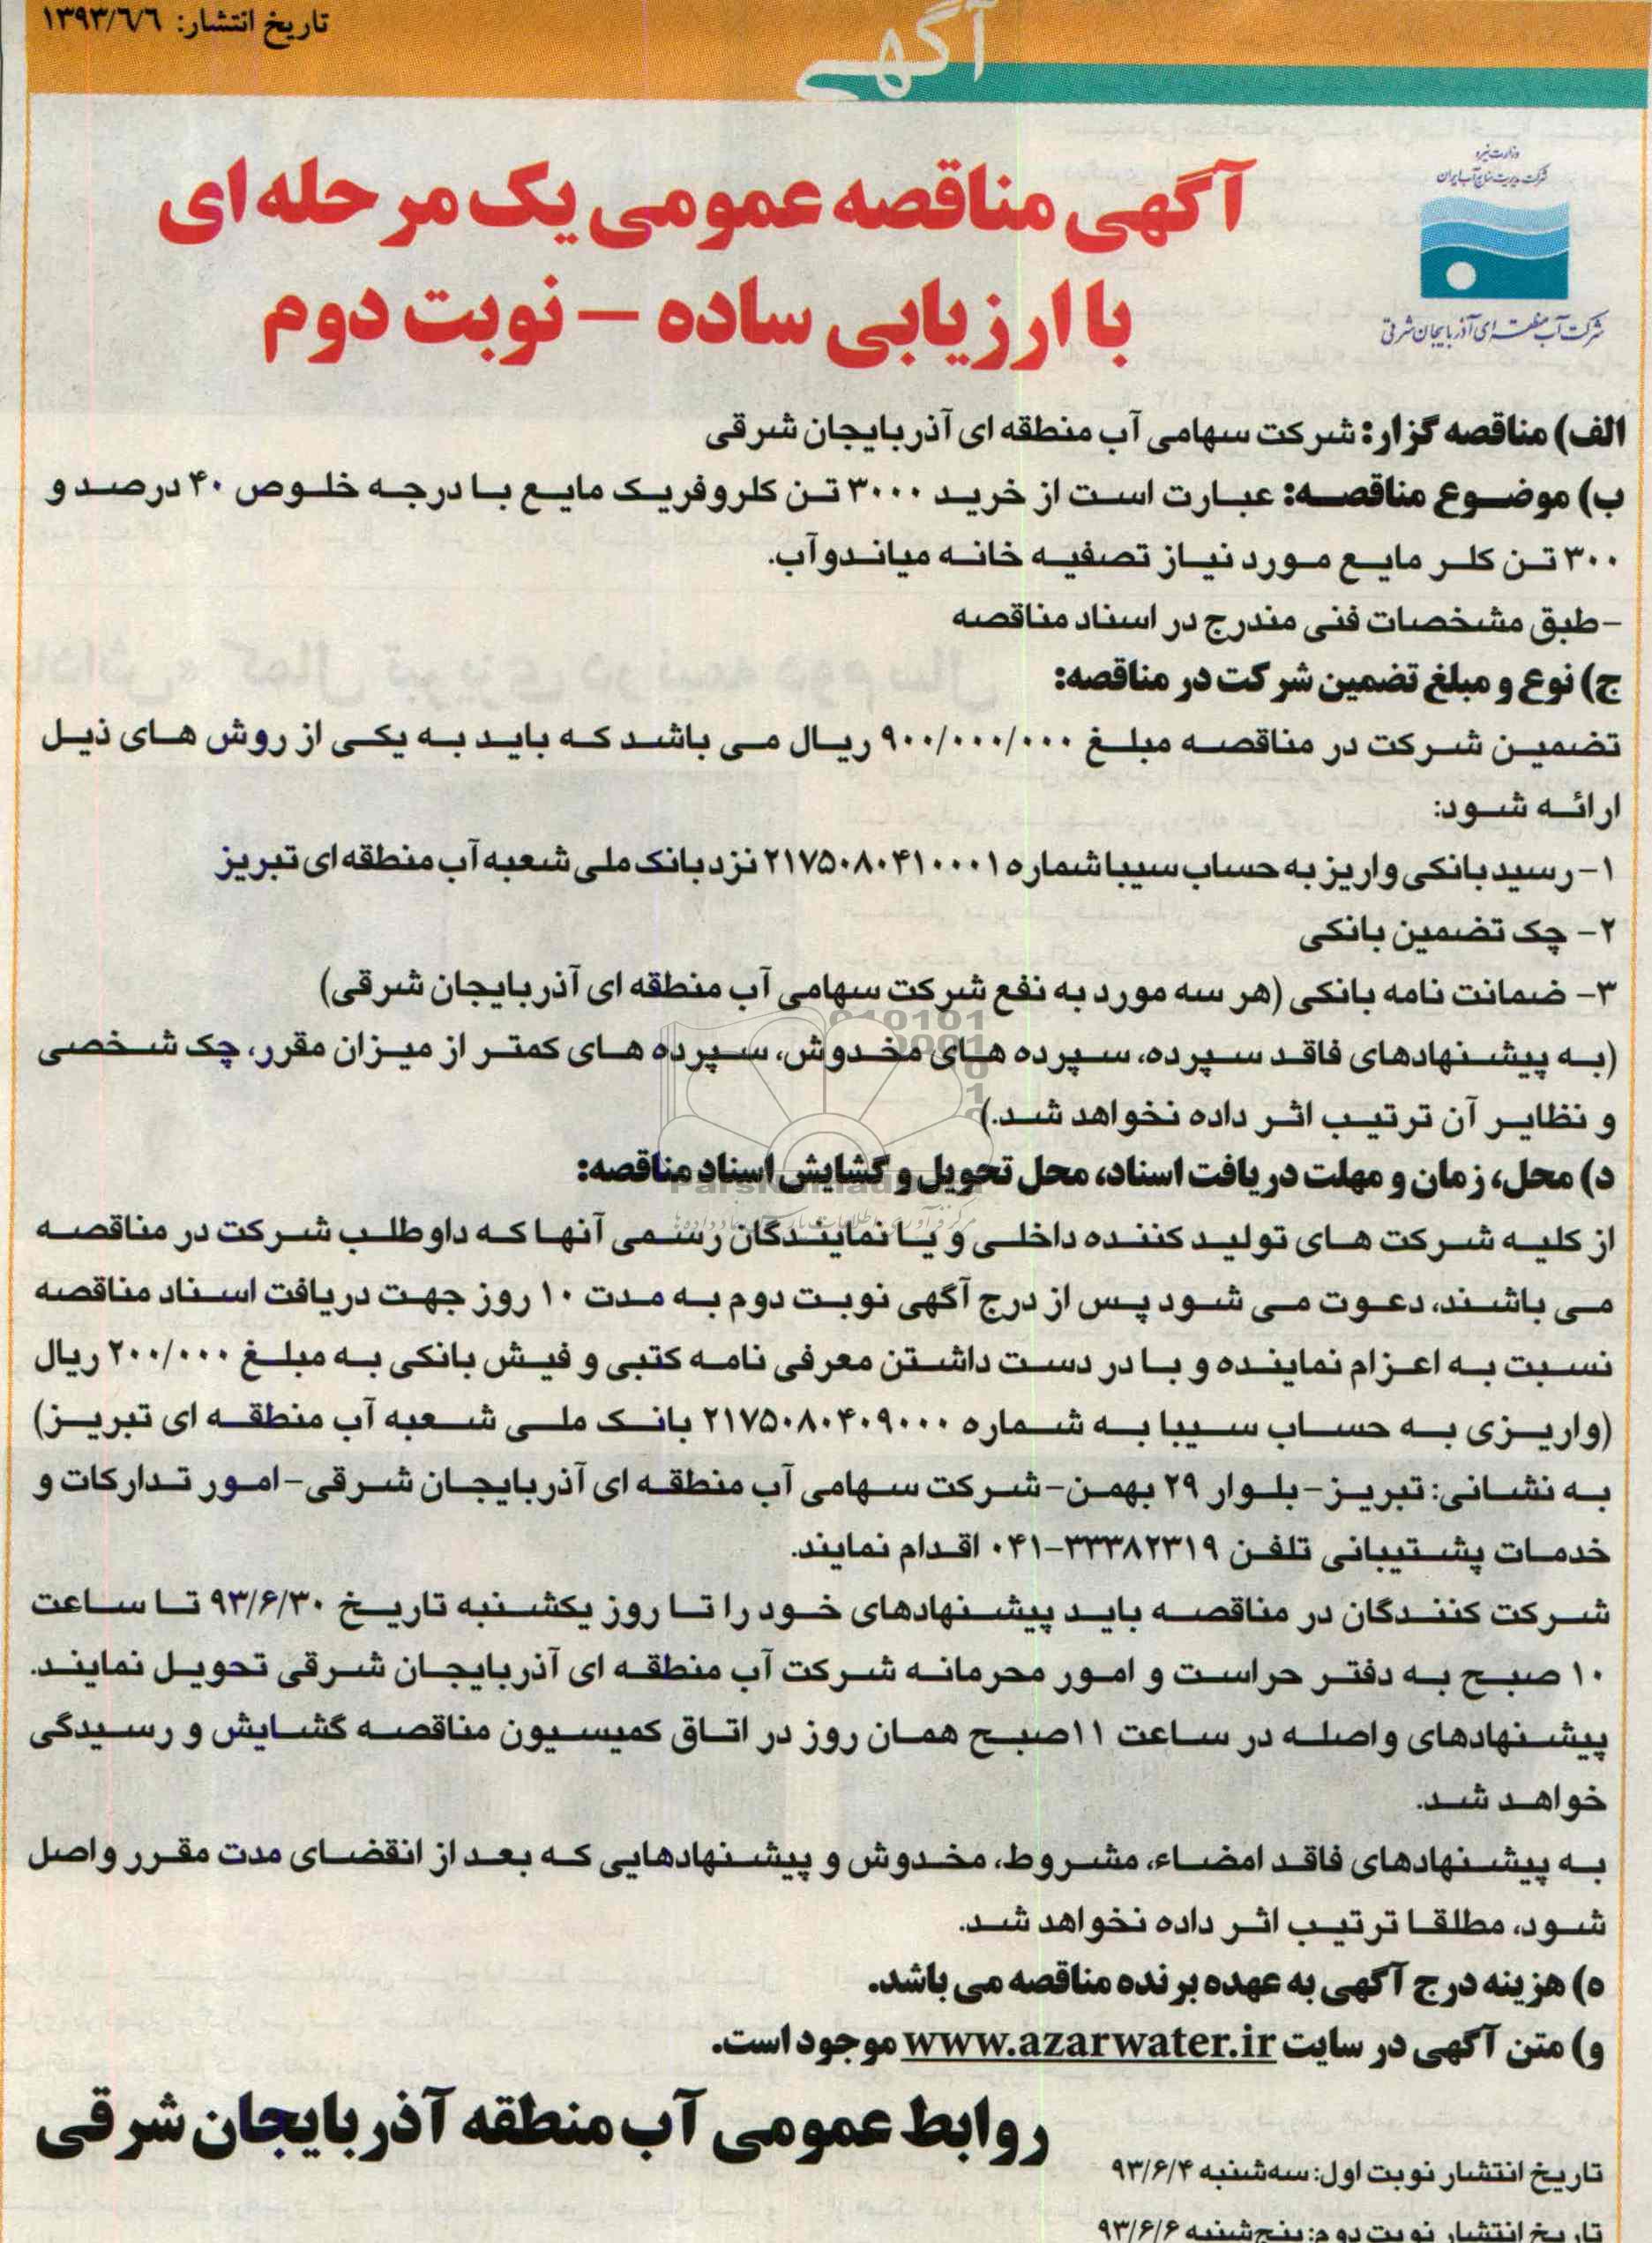 تاریخ انتشار: ۱۳۹۳/٦/٦
آگهی
وزارت نیرو
شرکت مدیریت منابع آب ایران
شرکت آب منطقه ای آذربایجان شرقی
آگهی مناقصه عمومی یک مرحله ای
با ارزیابی ساده – نوبت دوم
الف) مناقصه گزار: شرکت سهامی آب منطقه ای آذربایجان شرقی
ب) موضوع مناقصه: عبارت است از خرید ۳۰۰۰ تن کلروفریک مایع با درجه خلوص ۴۰ درصد و
۳۰۰ تن کلر مایع مورد نیاز تصفیه خانه میاندوآب.
-طبق مشخصات فنی مندرج در اسناد مناقصه
ج) نوع و مبلغ تضمین شرکت در مناقصه:
تضمین شرکت در مناقصه مبلغ ۹۰۰/۰۰۰/۰۰۰ ریال می باشد که باید به یکی از روش های ذیل
ارائه شود:
۱- رسید بانکی واریز به حساب سیبا شماره ۲۱۷۵۰۸۰۴۱۰۰۰۱ نزد بانک ملی شعبه آب منطقه ای تبریز
۲- چک تضمین بانکی
۳- ضمانت نامه بانکی (هر سه مورد به نفع شرکت سهامی آب منطقه ای آذربایجان شرقی)
(به پیشنهادهای فاقد سپرده، سپرده های مخدوش، سپرده های کمتر از میزان مقرر، چک شخصی
و نظایر آن ترتیب اثر داده نخواهد شد.)
د) محل، زمان و مهلت دریافت اسناد، محل تحویل و گشایش اسناد مناقصه:
از کلیه شرکت های تولید کننده داخلی و یا نمایندگان رسمی آنها که داوطلب شرکت در مناقصه
می باشند، دعوت می شود پس از درج آگهی نوبت دوم به مدت ۱۰ روز جهت دریافت اسناد مناقصه
نسبت به اعزام نماینده و با در دست داشتن معرفی نامه کتبی و فیش بانکی به مبلغ ۲۰۰/۰۰۰ ریال
(واریزی به حساب سیبا به شماره ۲۱۷۵۰۸۰۴۰۹۰۰۰ بانک ملی شعبه آب منطقه ای تبریز)
به نشانی: تبریز-بلوار ۲۹ بهمن-شرکت سهامی آب منطقه ای آذربایجان شرقی-امور تدارکات و
خدمات پشتیبانی تلفن ۳۳۳۸۲۳۱۹-۰۴۱ اقدام نمایند.
شرکت کنندگان در مناقصه باید پیشنهادهای خود را تا روز یکشنبه تاریخ ۹۳/۶/۳۰ تا ساعت
۱۰ صبح به دفتر حراست و امور محرمانه شرکت آب منطقه ای آذربایجان شرقی تحویل نمایند.
پیشنهادهای واصله در ساعت ۱۱صبح همان روز در اتاق کمیسیون مناقصه گشایش و رسیدگی
خواهد شد.
به پیشنهادهای فاقد امضاء، مشروط، مخدوش و پیشنهادهایی که بعد از انقضای مدت مقرر واصل
شود، مطلقا ترتیب اثر داده نخواهد شد.
ه) هزینه درج آگهی به عهده برنده مناقصه می باشد.
و) متن آگهی در سایت www.azarwater.ir موجود است.
روابط عمومی آب منطقه آذربایجان شرقی
تاریخ انتشار نوبت اول: سه‌شنبه ۹۳/۶/۴
تاریخ انتشار نوبت دوم: پنج‌شنبه ۹۳/۶/۶